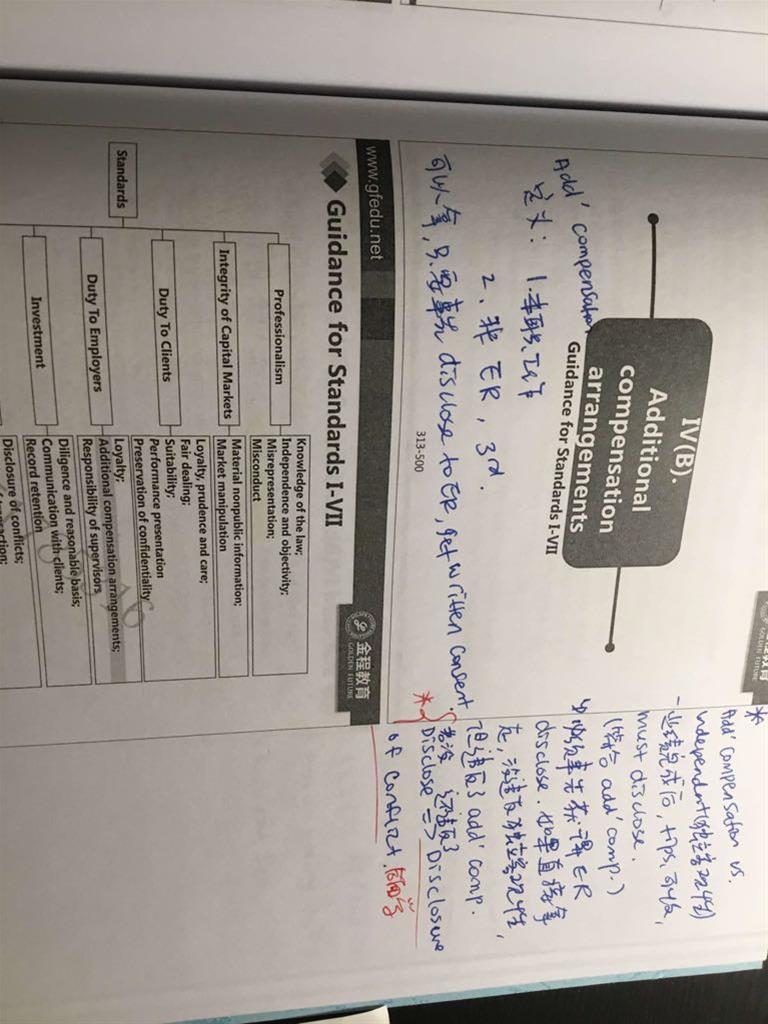 IV(B).
Additional
compensation
arrangements
Guidance for Standards I-VII
金程教育
GOLDEN FUTURE
Add' compensation
定义: 1.
2. 非 ER, 3rd.
可以拿, 只要事先 disclose to ER, get written consent
313-500
* Add' compensation vs.
independent(独立客观性)
业绩完成后, tips, 可收,
must disclose.
(符合 add' comp.)
disclose. 如果直接拿
走, 没违反独立客观性,
但违反了 add' comp.
Disclose => Disclosure
of conflict.
www.gfedu.net
金程教育
GOLDEN FUTURE
Guidance for Standards I-VII
Standards
Professionalism
Knowledge of the law;
Independence and objectivity;
Misrepresentation;
Misconduct
Integrity of Capital Markets
Material nonpublic information;
Market manipulation
Duty To Clients
Loyalty, prudence and care;
Fair dealing;
Suitability;
Performance presentation
Preservation of confidentiality
Duty To Employers
Loyalty;
Additional compensation arrangements;
Responsibility of supervisors
Investment
Diligence and reasonable basis;
Communication with clients;
Record retention
Disclosure of conflicts;